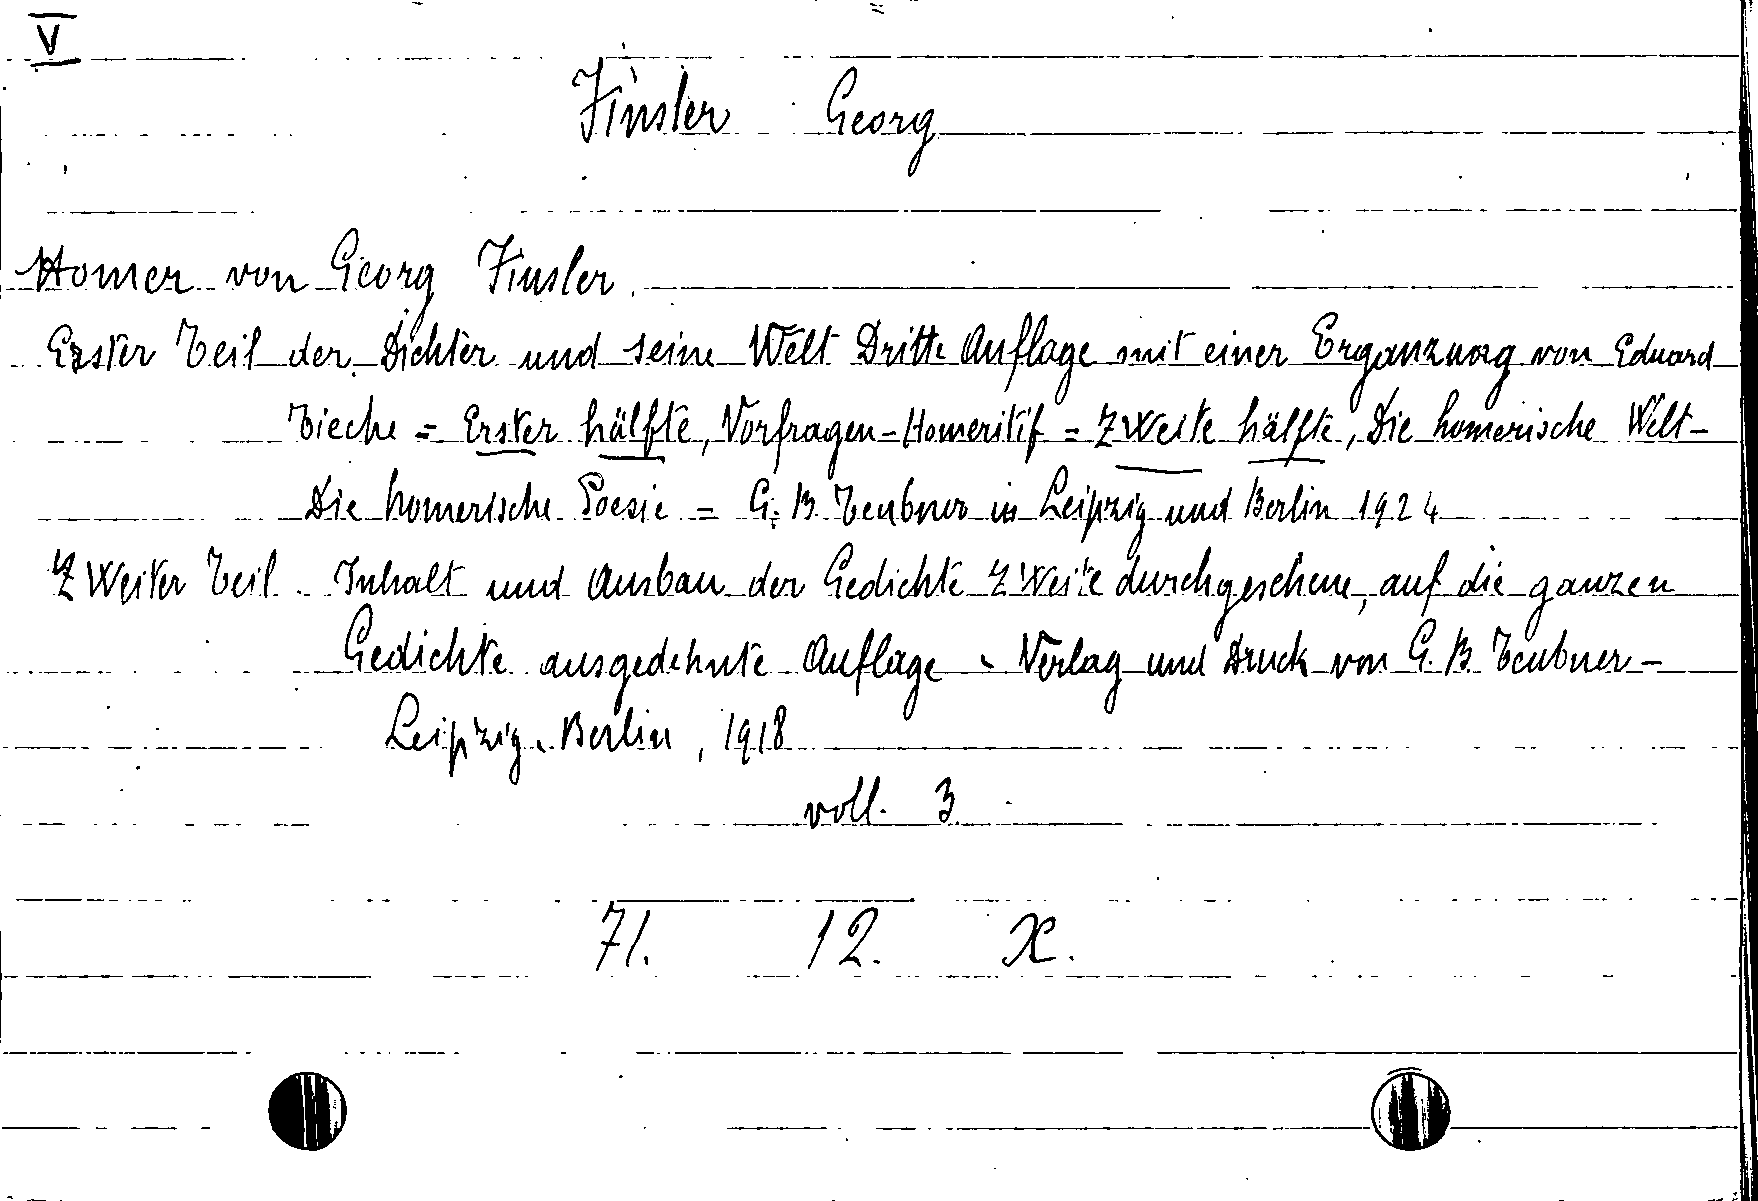 V
Finsler Georg
Homer von Georg Finsler.
Erster Teil der Dichter und seine Welt Dritte Auflage mit einer Erganzung von Eduard
Tieche = Erster hälfte, Vorfragen - Homeritif = Zweite hälfte, Die homerische Welt -
Die homerische Poesie = G. B. Teubner in Leipzig und Berlin 1924
Zweiter Teil Inhalt und Ausbau der Gedichte Zweite durchgesehene, auf die ganzen
Gedichte ausgedehnte Auflage - Verlag und Druck von G. B. Teubner -
Leipzig - Berlin, 1918
voll. 3
71. 12. X.